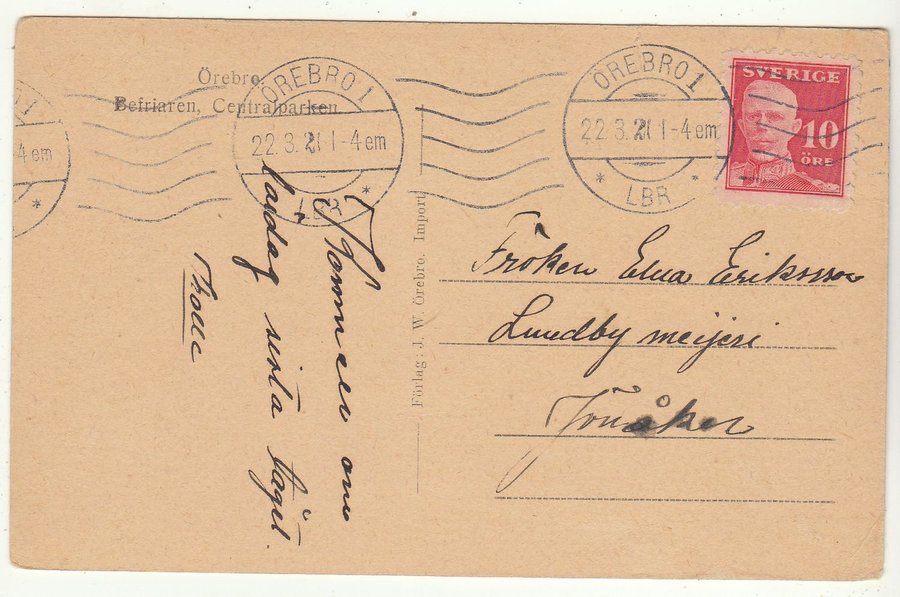 Örebro.
Befriaren, Centralparken
ÖREBRO 1
22.3.21 1-4 em
LBR
ÖREBRO 1
22.3.21 1-4 em
LBR
1
4 em
SVERIGE
10
ÖRE
Kommer om
lördag sista tåget.
Förlag: J. W. Örebro. Import
Fröken Elna Eriksson
Lundby mejeri
Jönåker